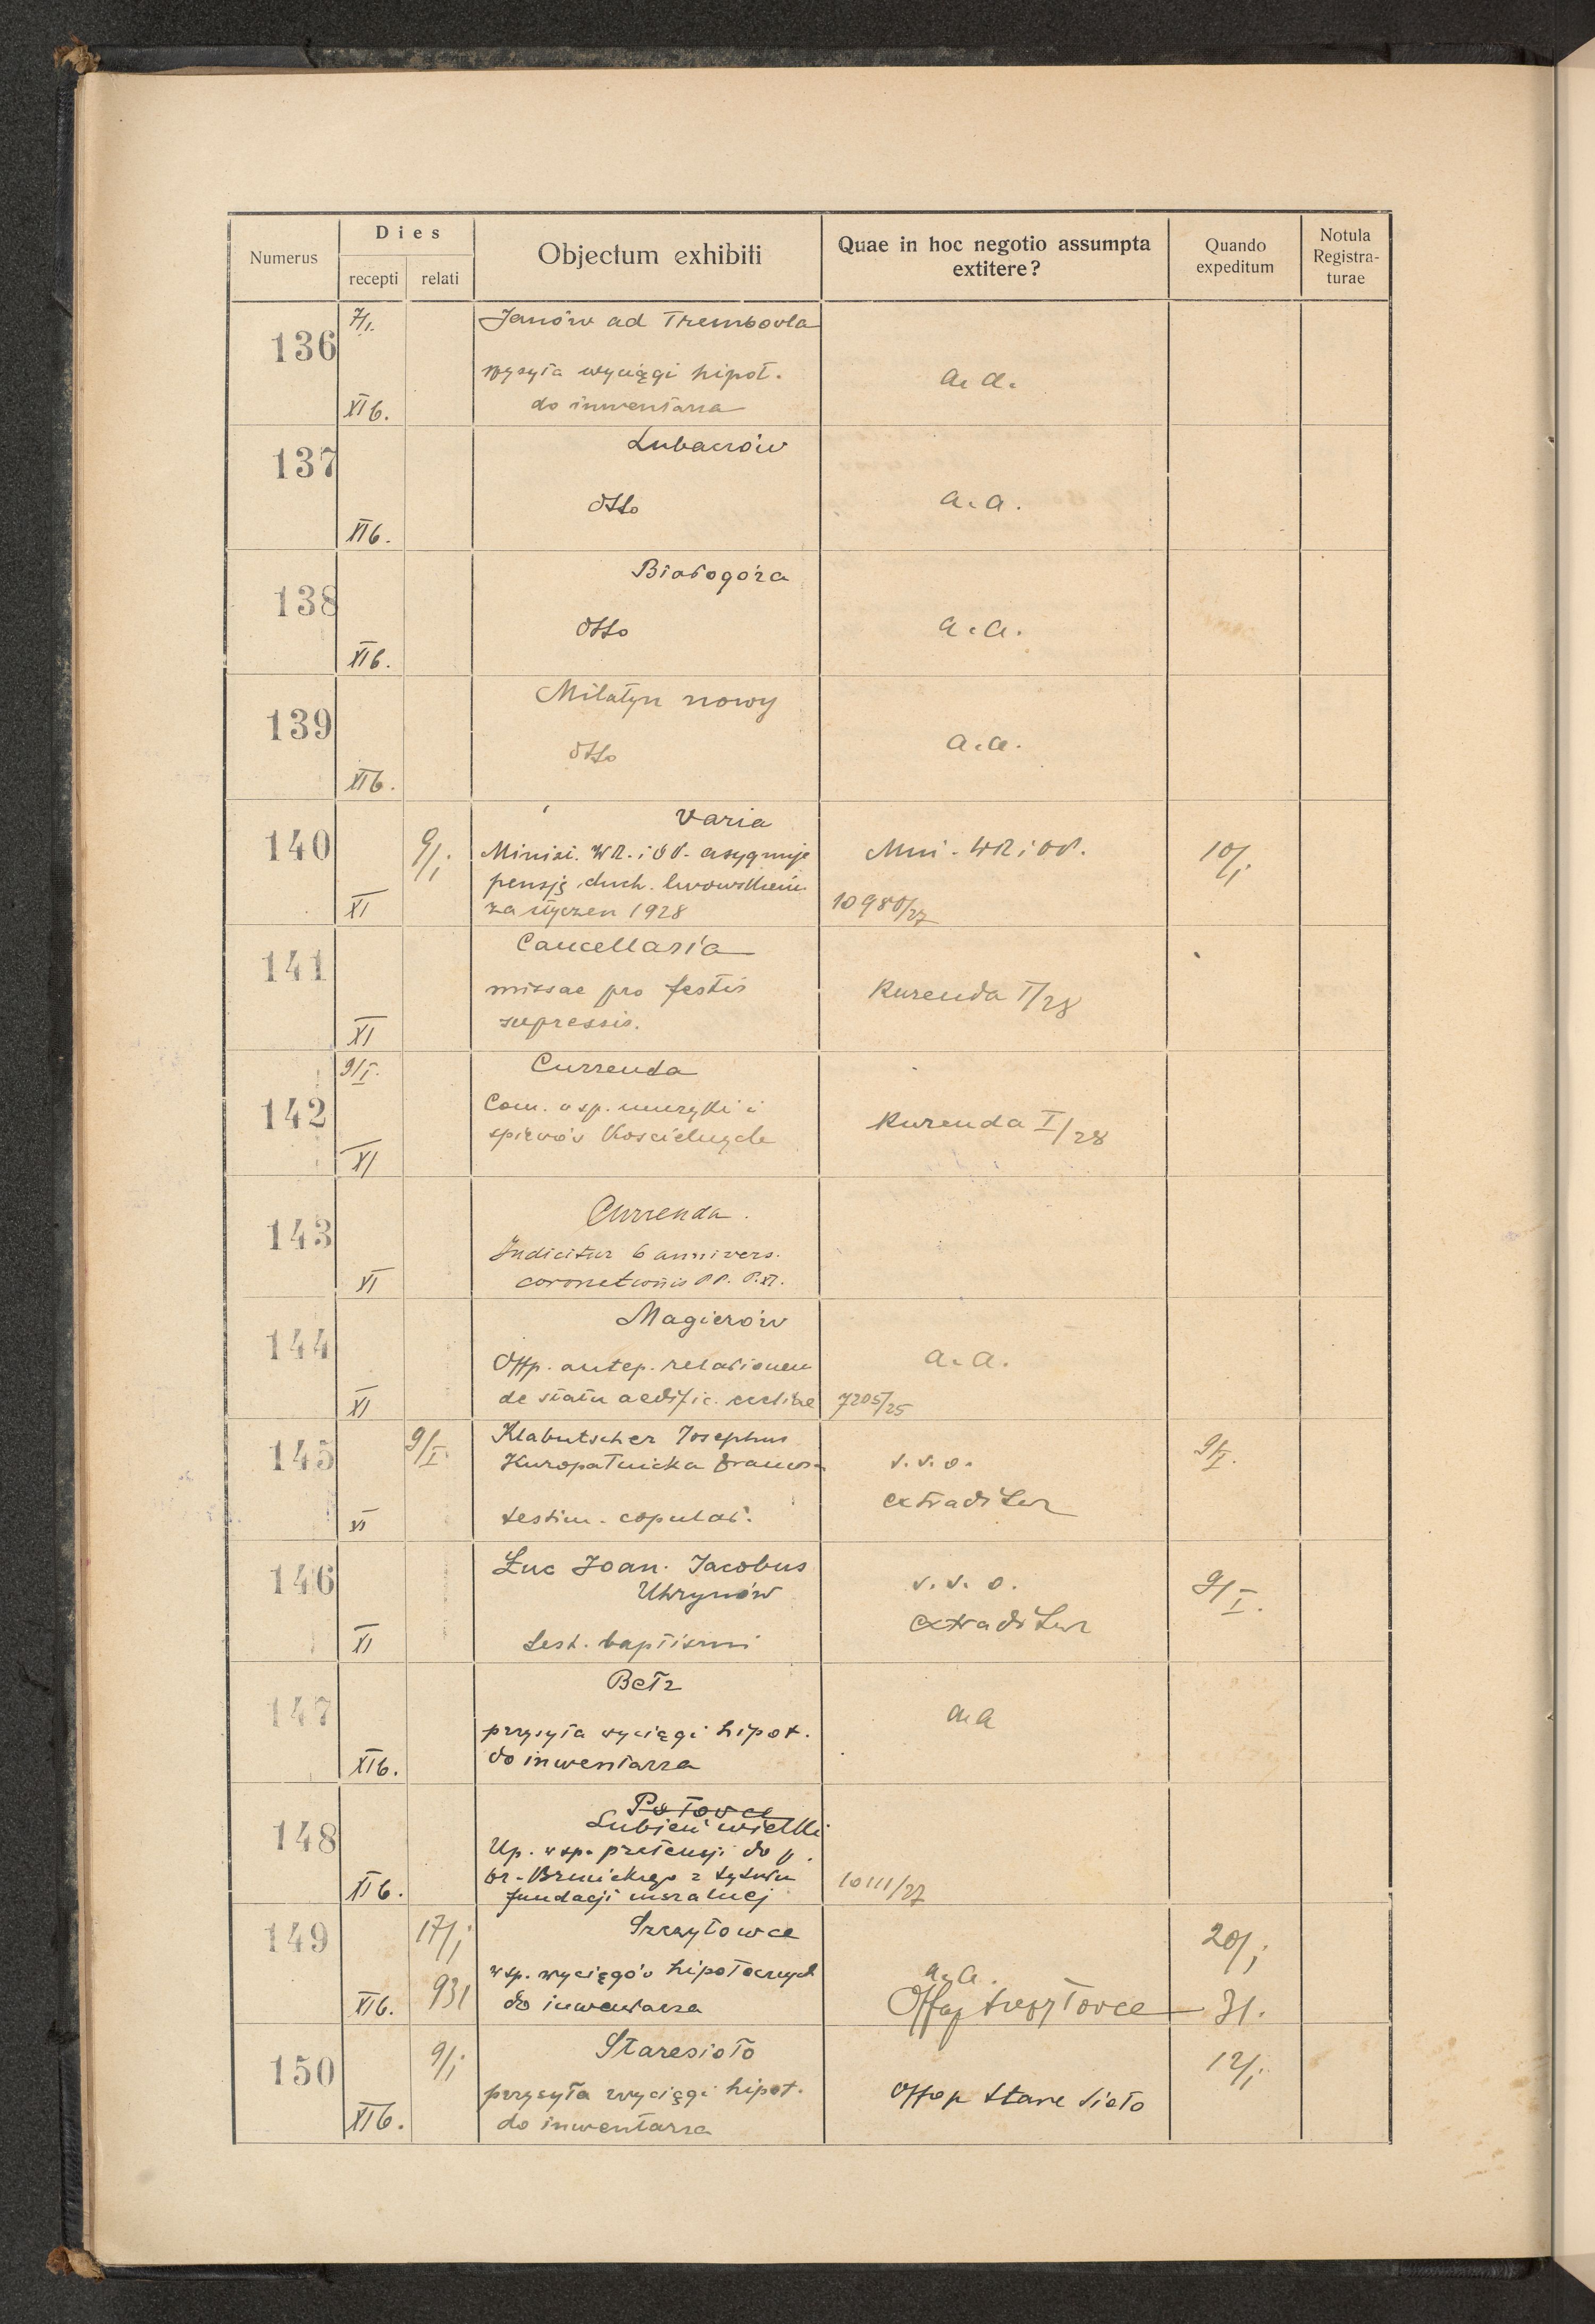 Numerus
Dies
recepti
relati
Objectum exhibiti
Quae in hoc negotio assumpta
extitere?
Quando
expeditum
Notula
Registra-
turae
136
7/I.
XI b.
Janów ad Trembovla
wysyła wyciągi hipot.
do inwentarza
a. a.
137
XI b.
Lubaczów
dtto
a. a.
138
XI b.
Białogóra
dtto
a. a.
139
XI b.
Milatyn nowy
dtto
a. a.
140
9/I.
XI
Varia
Minist. WR. i OP. asygnuje
pensję duch. lwowskiem
za styczen 1928
Min. WR i OP.
10980/27
10/I
141
XI
Cancellaria
missae pro festis
supressis.
Kurenda I/28
142
9/I.
XI
Currenda
Com. wsp. muzyki i
spiewów kościelnych
Kurenda I/28
143
XI
Currenda.
Indicitur 6 annivers.
coronationis PP. P. XI.
144
XI
Magierów
Offp. antep. relationem
de statu aedific. eccliae
a. a.
7205/25
145
9/I
XI
Klabutscher Josephus
Kuropatnicka
testim. copulat.
s. v. o.
extraditur
9/I.
146
XI
Łuc Joan. Jacobus
Uhrynów
test. baptismi
s. v. o.
extraditur
9/I.
147
XI b.
Bełz
przysyła wyciągi hipot.
do inwentarza
a. a
148
XI b.
Potovce
Lubień wielki
Up. wsp. pretensji do p.
br. Brunickiego z tytułu
fundacji mszalnej
10111/27
149
17/I
XI b.
931
Szczytowce
wsp. wyciągów hipotecznych
do inwentarza
a. a.
20/I
31.
150
9/I
XI b.
Staresioło
przysyła wyciągi hipot.
do inwentarza
Offop Stare Sioło
12/I